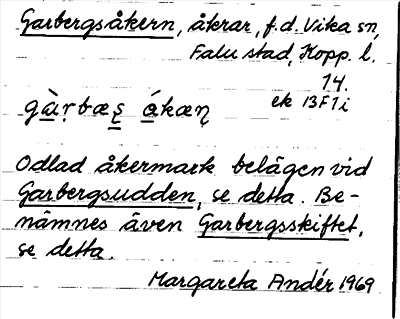 Garbergsåkern, åkrar, f.d. Vika sn,
Falu stad, Kopp. l.
14.
ek 13F1i
gàṛbæs̨ ákæn̨
Odlad åkermark belägen vid
Garbergsudden, se detta. Be-
nämnes även Garbergsskiftet,
se detta.
Margareta Andér 1969